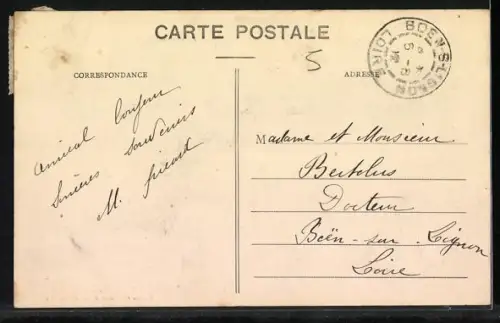 CARTE POSTALE
BOËN-S-LIGNON
LOIRE
5
CORRESPONDANCE
ADRESSE
amical
Sincères souvenirs
M.
Madame et Monsieur
Bertolus
Docteur
Boën-sur-Lignon
Loire